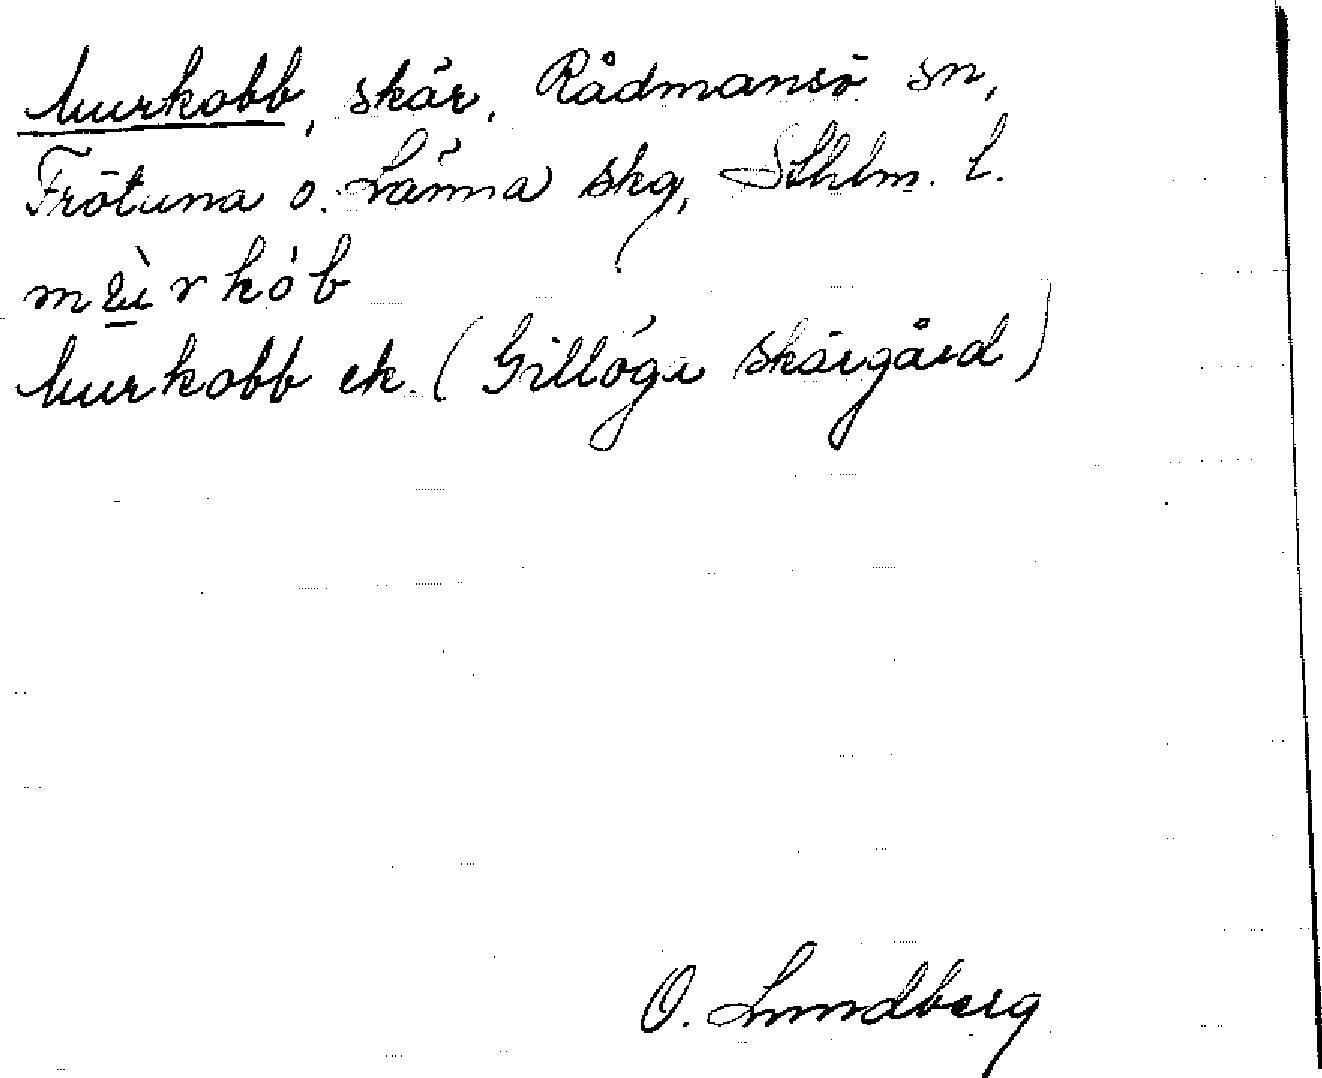 Murkobb, skär, Rådmansö sn,
Frötuna o. Länna skg, Sthlm. l.
mùrkób
Murkobb ek. (Gillöga skärgård)
O. Lundberg